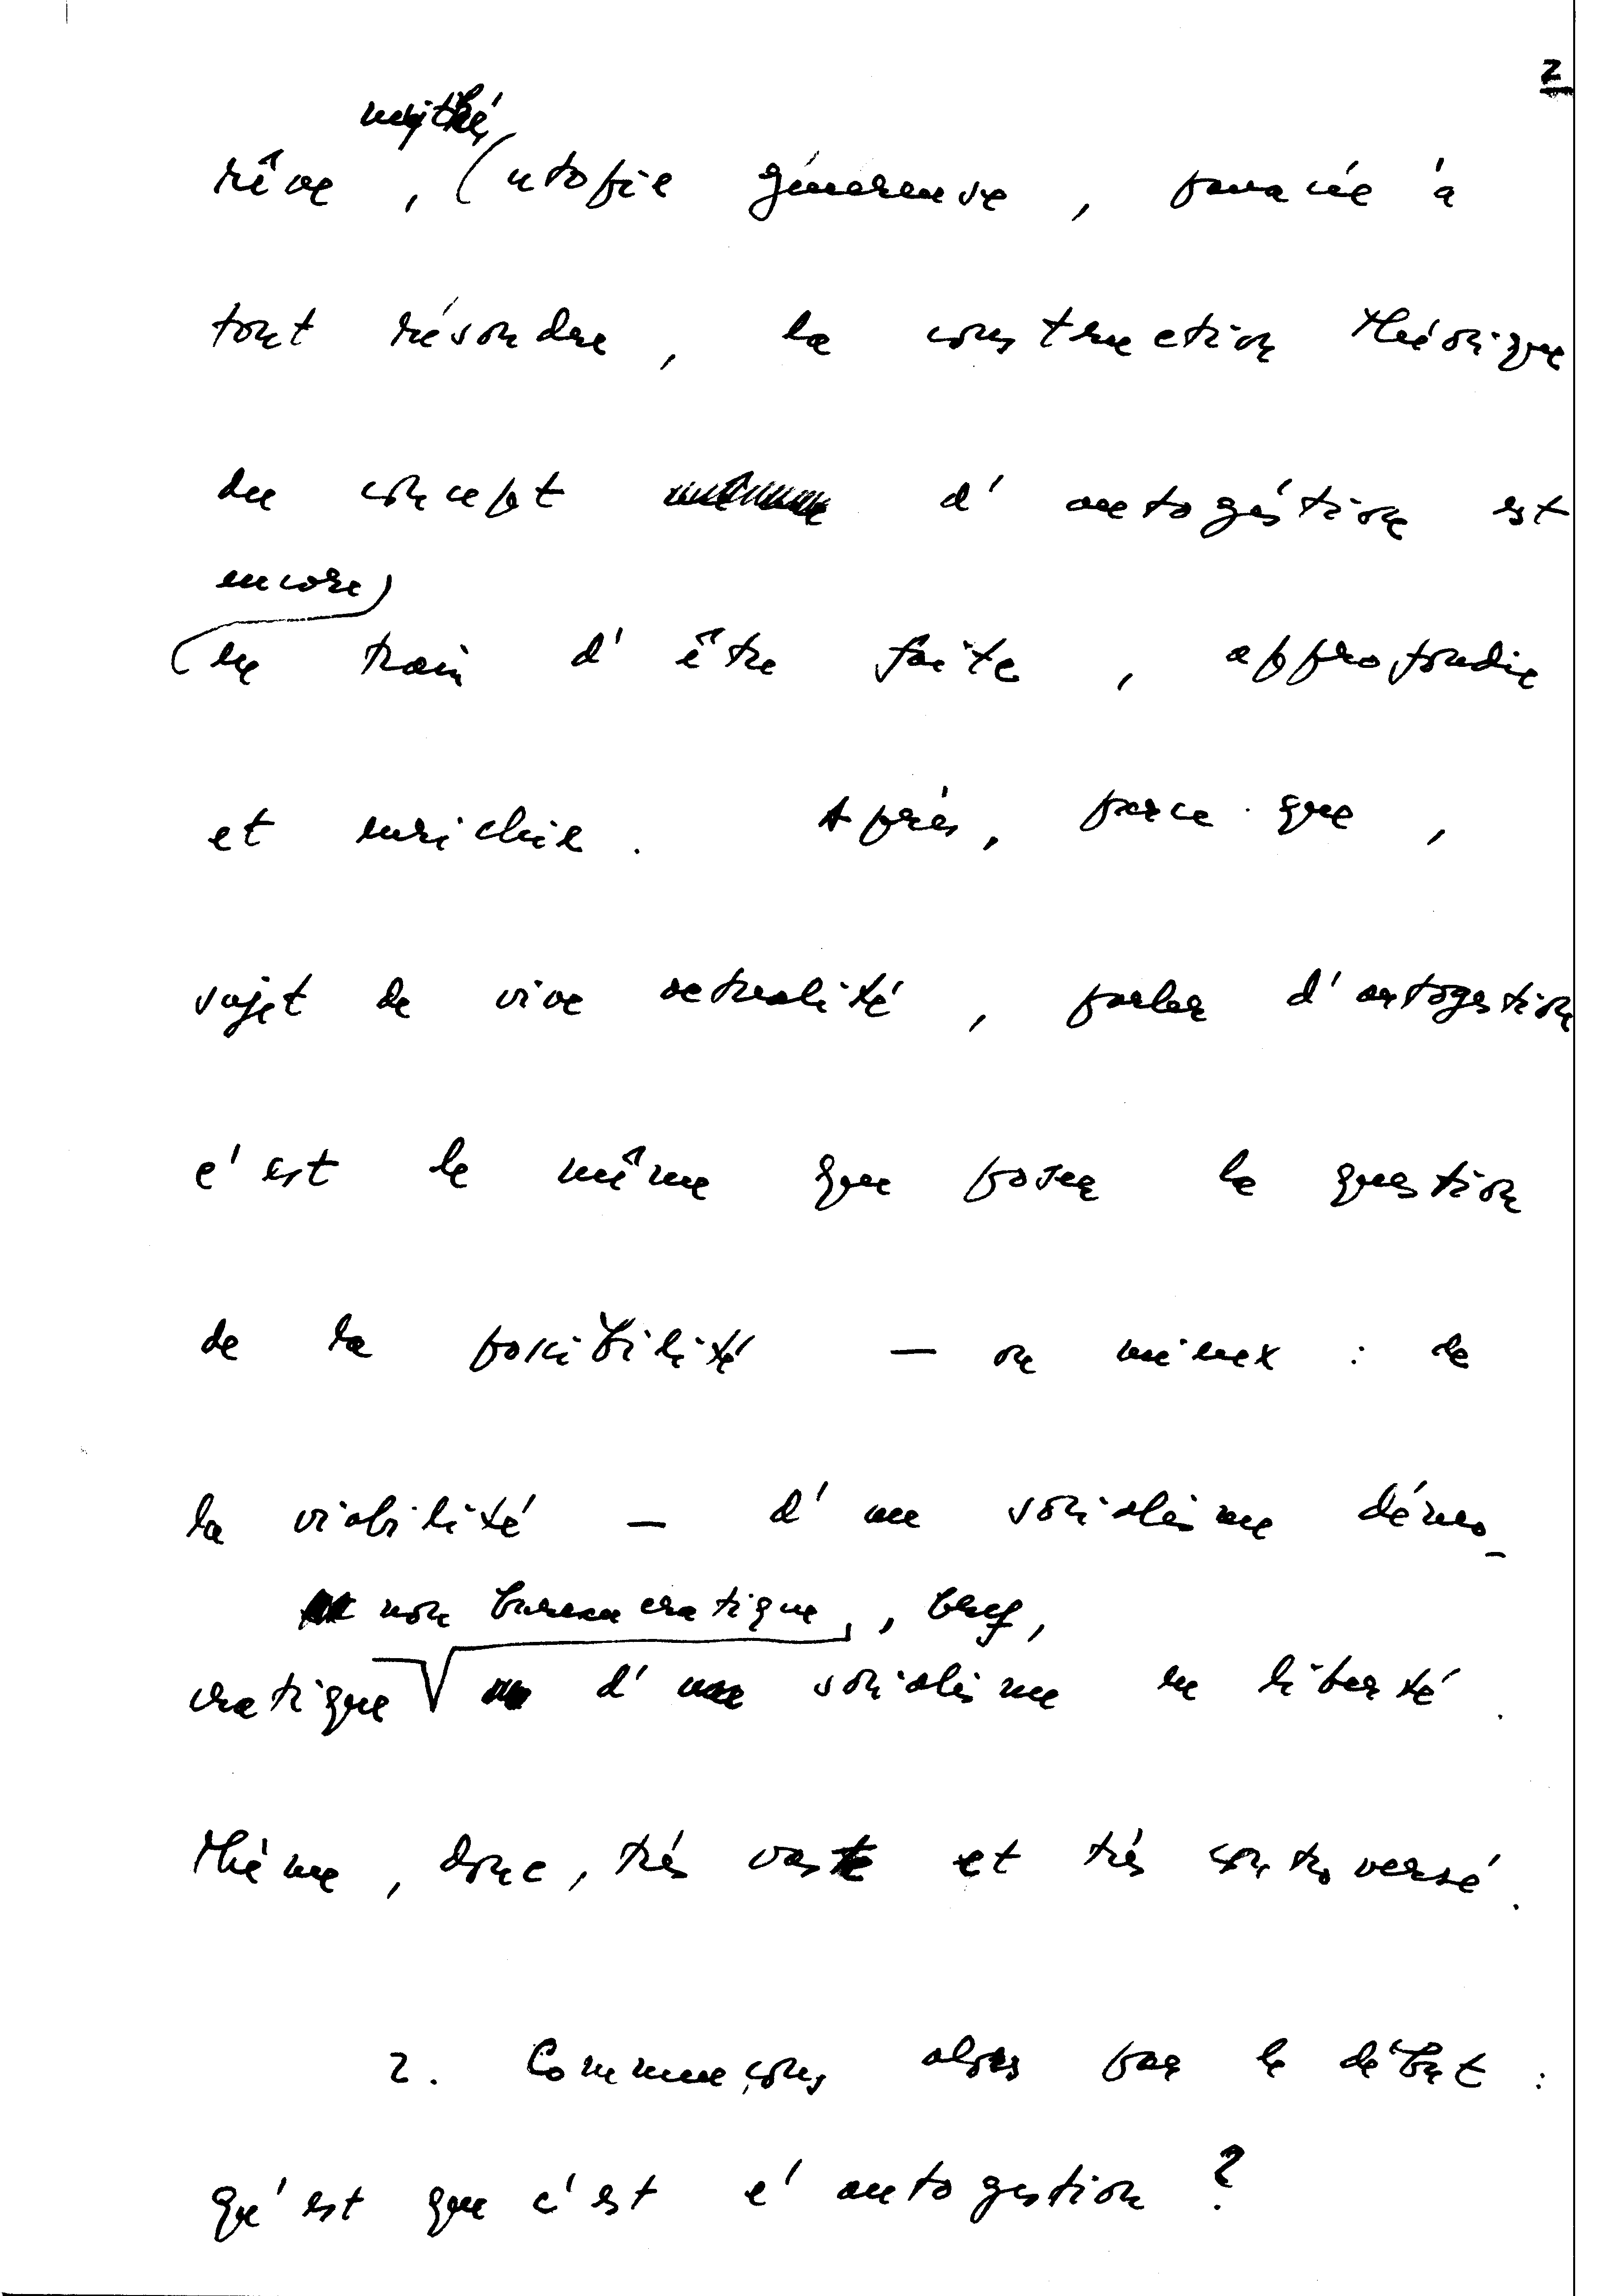 2
mythe,
rêve, (utopie génereuse, panacée à
tout résoudre, la construction théorique
du concept d'autogéstion est
encore)
(en train d'être faite, approfondie
et enrichie. Après, parce que,
sujet de vive actualité, parler d'autogestion
c'est le même que poser la question
de la possibilité — ou mieux : de
la viabilité — d'un socialisme démo-
non bureaucratique, , bref,
cratique d'un socialisme en liberté.
Thème, donc, très vaste et très controversé.
2. Commençons alors par le début :
qu'est que c'est l'autogestion ?